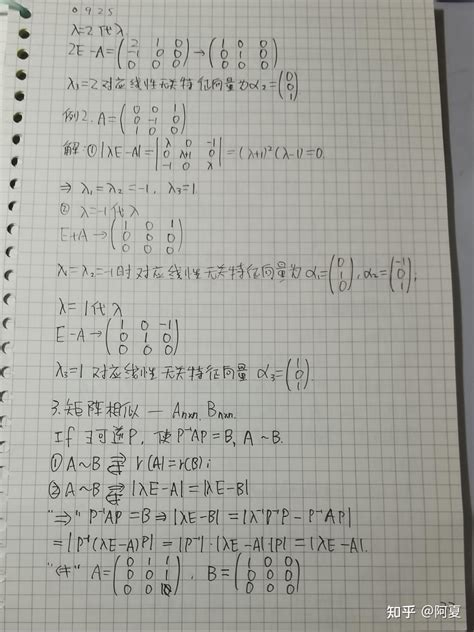 0925
λ=2代λ.
2E-A=(2 1 0; -1 0 0; 0 0 0)→(1 0 0; 0 1 0; 0 0 0)
λ₃=2对应线性无关特征向量为α₂=(0; 0; 1)
例2. A=(0 0 1; 0 -1 0; 1 0 0)
解: ① |λE-A|=|λ 0 -1; 0 λ+1 0; -1 0 λ|=(λ+1)²(λ-1)=0.
⇒ λ₁=λ₂=-1, λ₃=1.
② λ=-1代λ
E+A→(1 0 1; 0 0 0; 0 0 0)
λ₁=λ₂=-1时对应线性无关特征向量为 α₁=(0; 1; 0), α₂=(-1; 0; 1);
λ=1代λ
E-A→(1 0 -1; 0 1 0; 0 0 0)
λ₃=1对应线性无关特征向量 α₃=(1; 0; 1).
3.矩阵相似 — Anxn, Bnxn.
If ∃可逆P, 使P⁻¹AP=B, A~B.
① A~B ⇄ r(A)=r(B);
② A~B ⇄ |λE-A|=|λE-B|
"⇒" P⁻¹AP=B⇒|λE-B|=|λP⁻¹P-P⁻¹AP|
=|P⁻¹(λE-A)P|=|P⁻¹|·|λE-A|·|P|=|λE-A|.
"⇍" A=(0 1 1; 0 0 1; 0 0), B=(1 0 0; 0 0 0; 0 0 0)
知乎 @阿夏